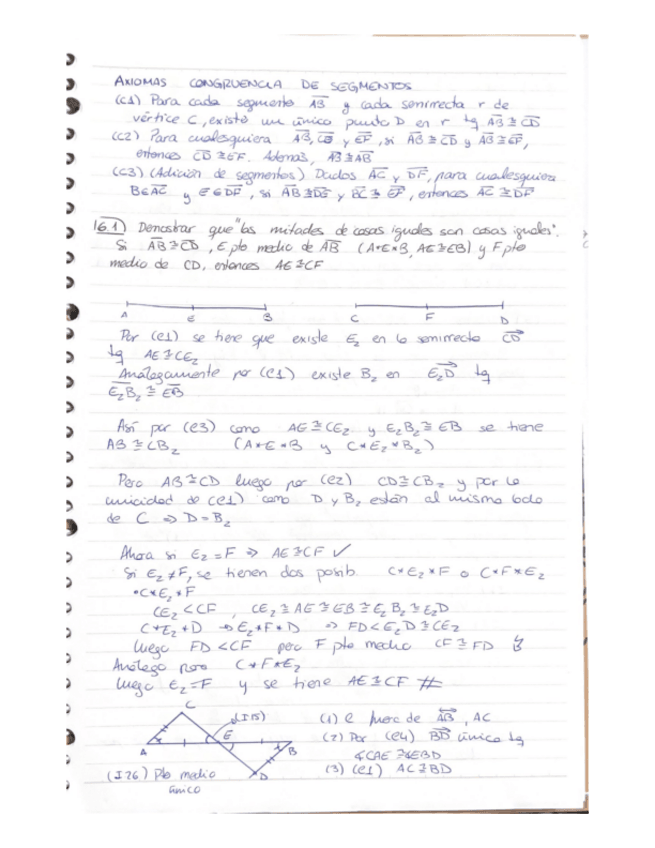 AXIOMAS CONGRUENCIA DE SEGMENTOS
(C1) Para cada segmento AB y cada semirrecta r de
vértice C, existe un único punto D en r tq AB ≅ CD
(C2) Para cualesquiera AB, CD y EF, si AB ≅ CD y AB ≅ EF,
entonces CD ≅ EF. Además, AB ≅ AB
(C3) (Adición de segmentos) Dados AC y DF, para cualesquiera
B∈AC y E∈DF, si AB ≅ DE y BC ≅ EF, entonces AC ≅ DF
16.1) Demostrar que "las mitades de cosas iguales son cosas iguales".
Si AB ≅ CD, E pto medio de AB (A*E*B, AE ≅ EB) y F pto
medio de CD, entonces AE ≅ CF
A E B C F D
Por (C1) se tiene que existe E₂ en la semirrecta CD
tq AE ≅ CE₂
Análogamente por (C1) existe B₂ en E₂D tq
E₂B₂ ≅ EB
Así por (C3) como AE ≅ CE₂ y E₂B₂ ≅ EB se tiene
AB ≅ CB₂ (A*E*B y C*E₂*B₂)
Pero AB ≅ CD luego por (C2) CD ≅ CB₂ y por la
unicidad de (C1) como D y B₂ están al mismo lado
de C ⇒ D = B₂
Ahora si E₂ = F ⇒ AE ≅ CF ✓
Si E₂ ≠ F, se tienen dos posib. C*E₂*F o C*F*E₂
• C*E₂*F
CE₂ < CF, CE₂ ≅ AE ≅ EB ≅ E₂B₂ ≅ E₂D
C*E₂*D ⇒ E₂*F*D ⇒ FD < E₂D ≅ CE₂
luego FD < CF pero F pto medio CF ≅ FD ↯
Análogo para C*F*E₂
luego E₂ = F y se tiene AE ≅ CF #
C
(I15)
A E B
D
(I26) Pto medio
único
(1) C fuera de AB, AC
(2) Por (C4) BD único tq
∢CAE ≅ ∢EBD
(3) (C1) AC ≅ BD